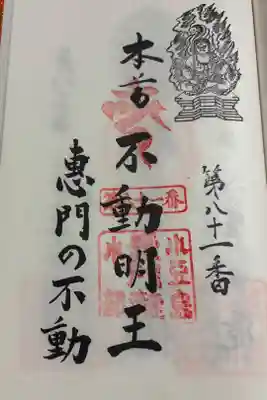 第八十一番
本尊 不動明王
惠門の不動
小豆島